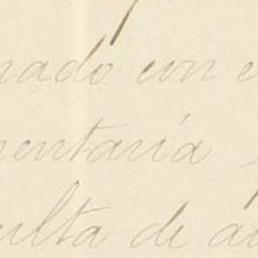 nado con e
mentaria
ulta de a